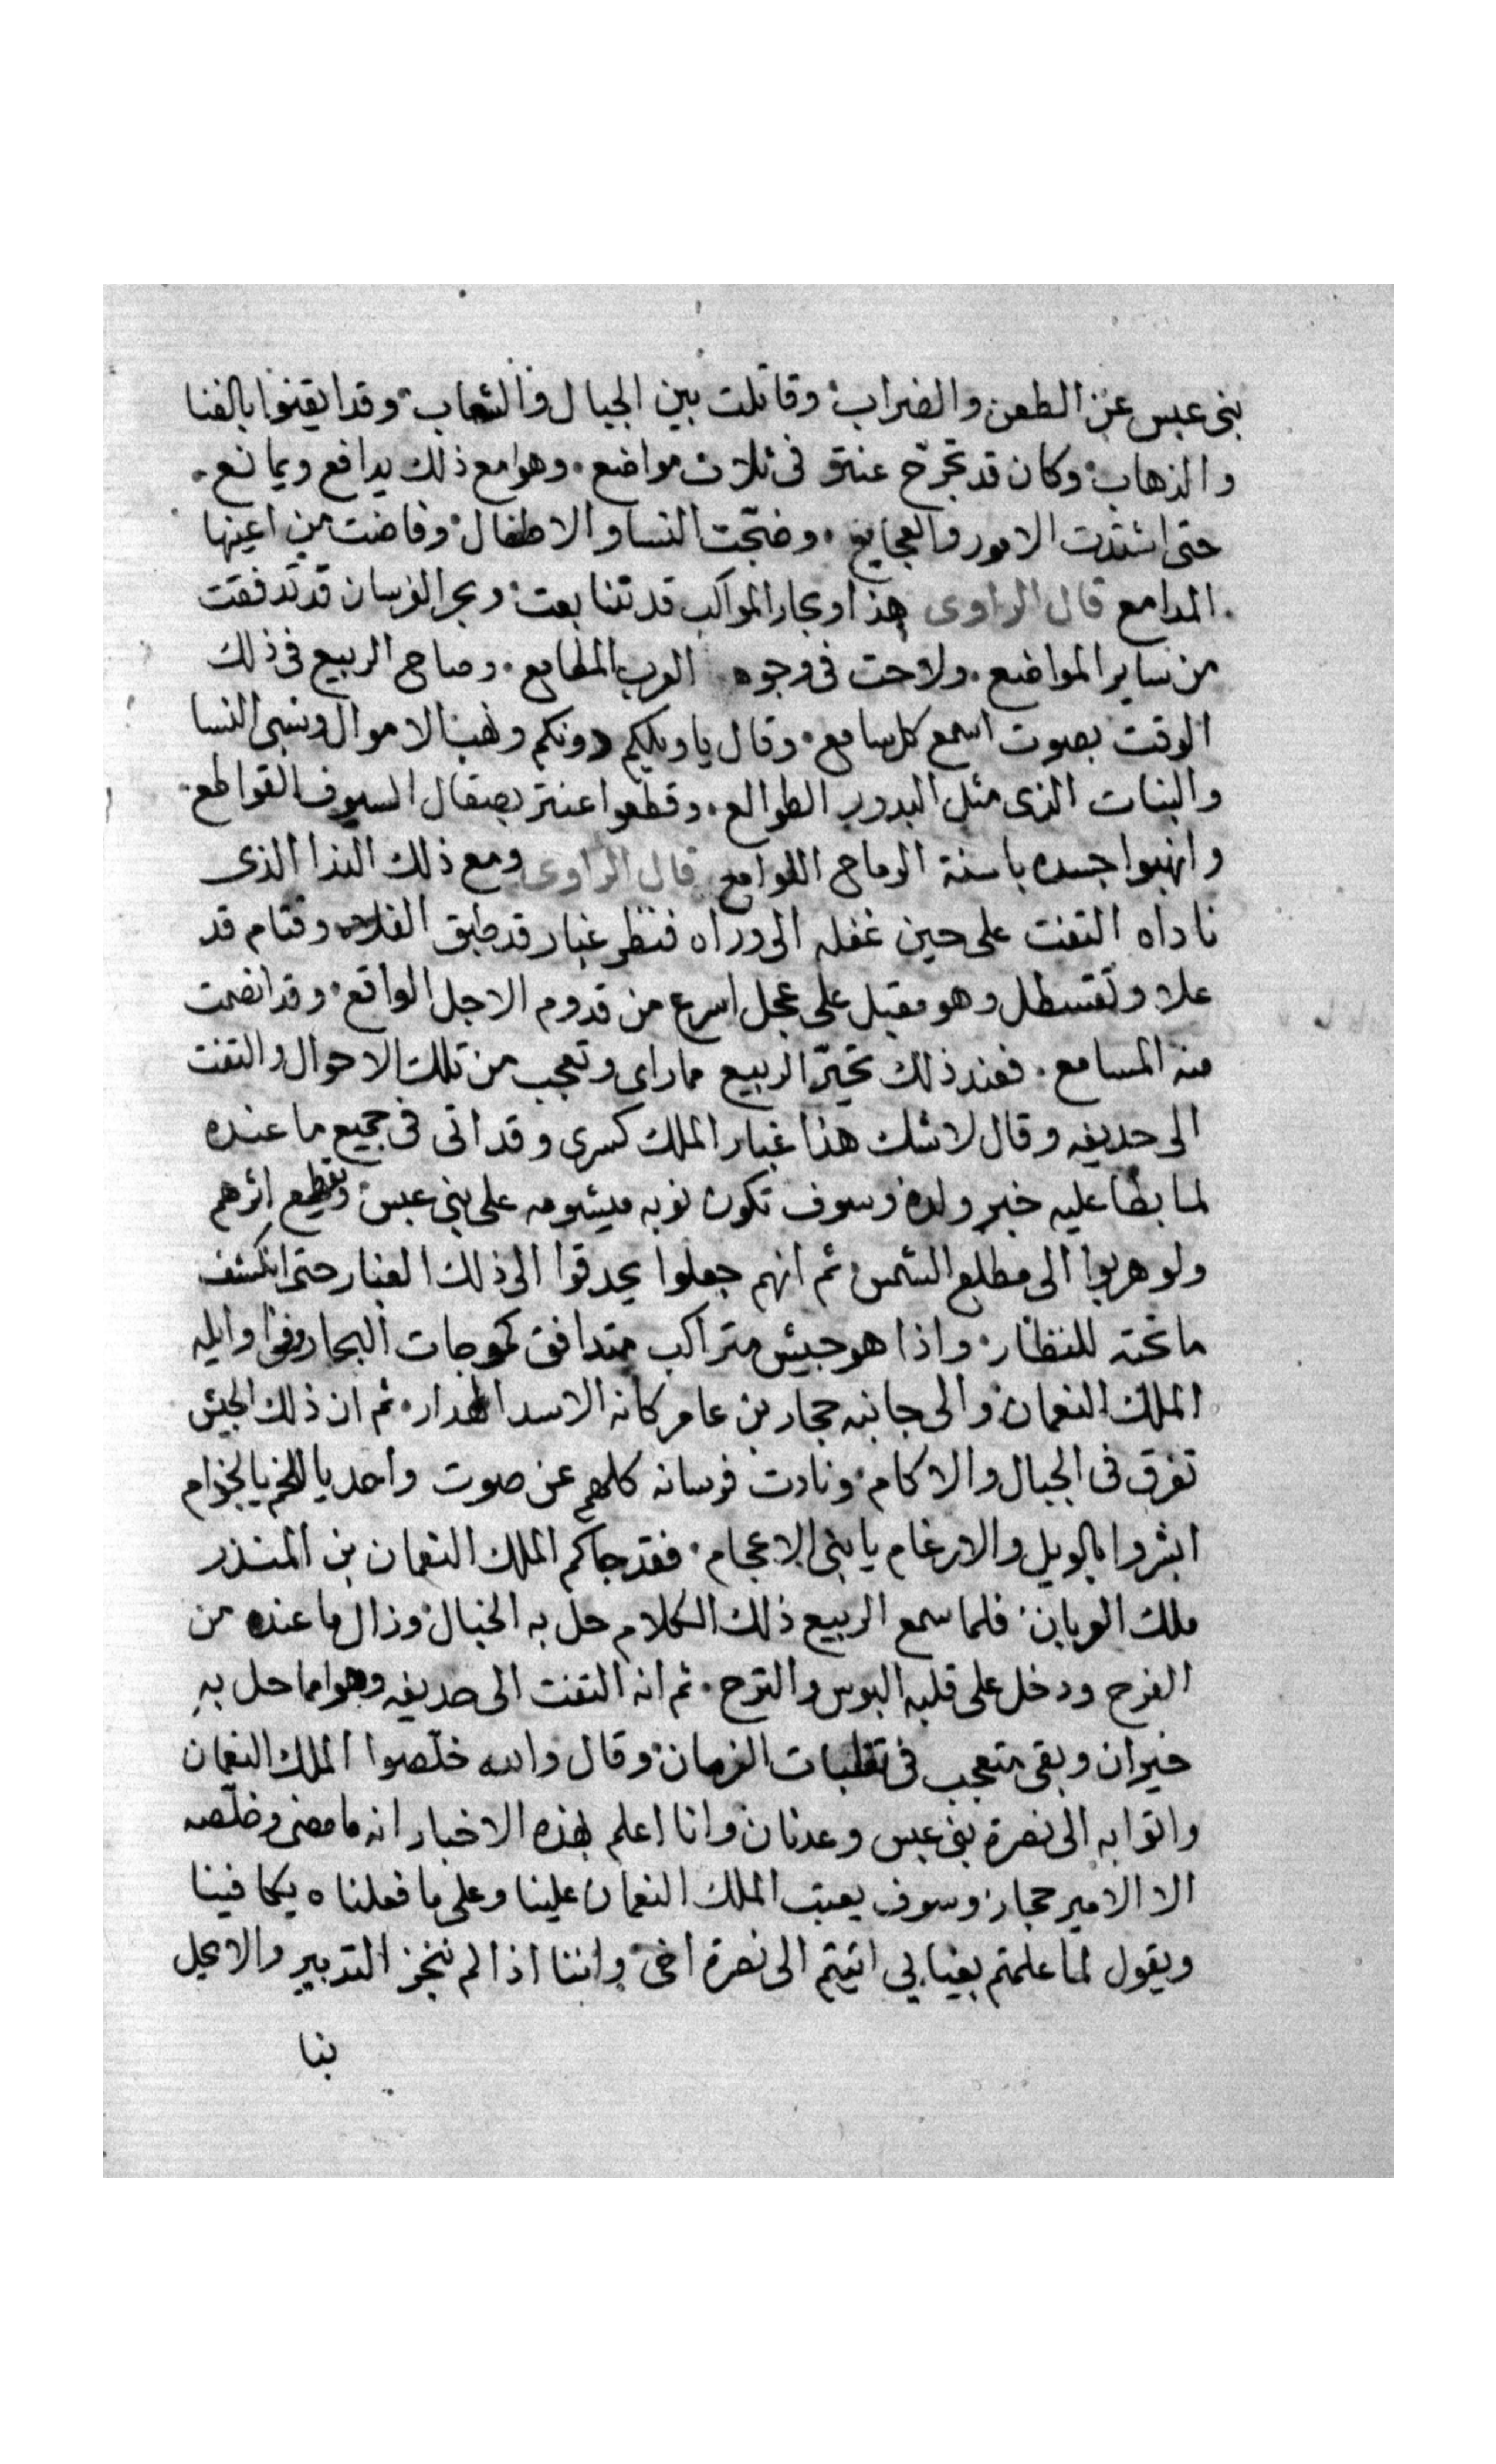 بنى عبس عن الطعن والضراب وقاتلت بين الجبال والشعاب وقد ايقنوا بالفنا
والذهاب وكان قد تجرّح عنتر فى ثلاث مواضع وهو مع ذلك يدافع ويمانع
حتى اشتدت الامور والفجايع وضجّت النسا والاطفال وفاضت من اعينها
المدامع قال الراوى هذا وبحار المواكب قد تتابعت وبحر الفرسان قد تدفقت
من ساير المواضع ولاحت فى وجوه العرب المطامع وصاح الربيع فى ذلك
الوقت بصوت اسمع كل سامع وقال ياويلكم دونكم ونهب الاموال وسبى النسا
والبنات الذى مثل البدور الطوالع وقطعوا عنتر بصقال السيوف القواطع
وانهبوا جسده باسنة الرماح اللوامع قال الراوى ومع ذلك الندا الذى
ناداه التفت على حين غفله الى وراه فنظر غبار قد طبق الفلاه وقتام قد
علا وتقسطل وهو مقبل على عجل اسرع من قدوم الاجل الواقع وقد انصمت
منه المسامع فعند ذلك تحيّر الربيع مماراى وتعجب من تلك الاحوال والتفت
الى حديفه وقال لاشك هذا غبار الملك كسرى وقد اتى فى جميع ما عنده
لما بطا عليه خبر ولده وسوف تكون نوبه ميشومه على بنى عبس وتقطيع اثرهم
ولو هربوا الى مطلع الشمس ثم انهم جعلوا يحدقوا الى ذلك الغبار حتى انكشف
ما تحته للنظار واذا هو جيش متراكب متدافق كموجات البحار وفى اوايله
الملك النعمان والى جانبه حجار بن عامر كانه الاسد الهدار ثم ان ذلك الجيش
تفرق فى الجبال والاكام ونادت فرسانه كلهم عن صوت واحد يا للخم يا لجزام
ابشروا بالويل والارغام يا بنى الاعجام فقد جاكم الملك النعمان بن المنذر
ملك العربان فلما سمع الربيع ذلك الكلام حل به الخبال وزال ما عنده من
الفرح ودخل على قلبه البوس والترح ثم انه التفت الى حديفه وهو مما حل به
حيران وبقى متعجب فى تقلبات الزمان وقال والله خلّصوا الملك النعمان
واتوا به الى نصرة بنى عبس وعدنان وانا اعلم بهذه الاخبار انه ما مضى وخلّصه
الا الامير حجار وسوف يعتب الملك النعمان علينا وعلى ما فعلناه يكافينا
ويقول لما علمتم بغيابي اتيتم الى نصرة اخى واننا اذا لم ننجز التدبير والا عجل
بنا